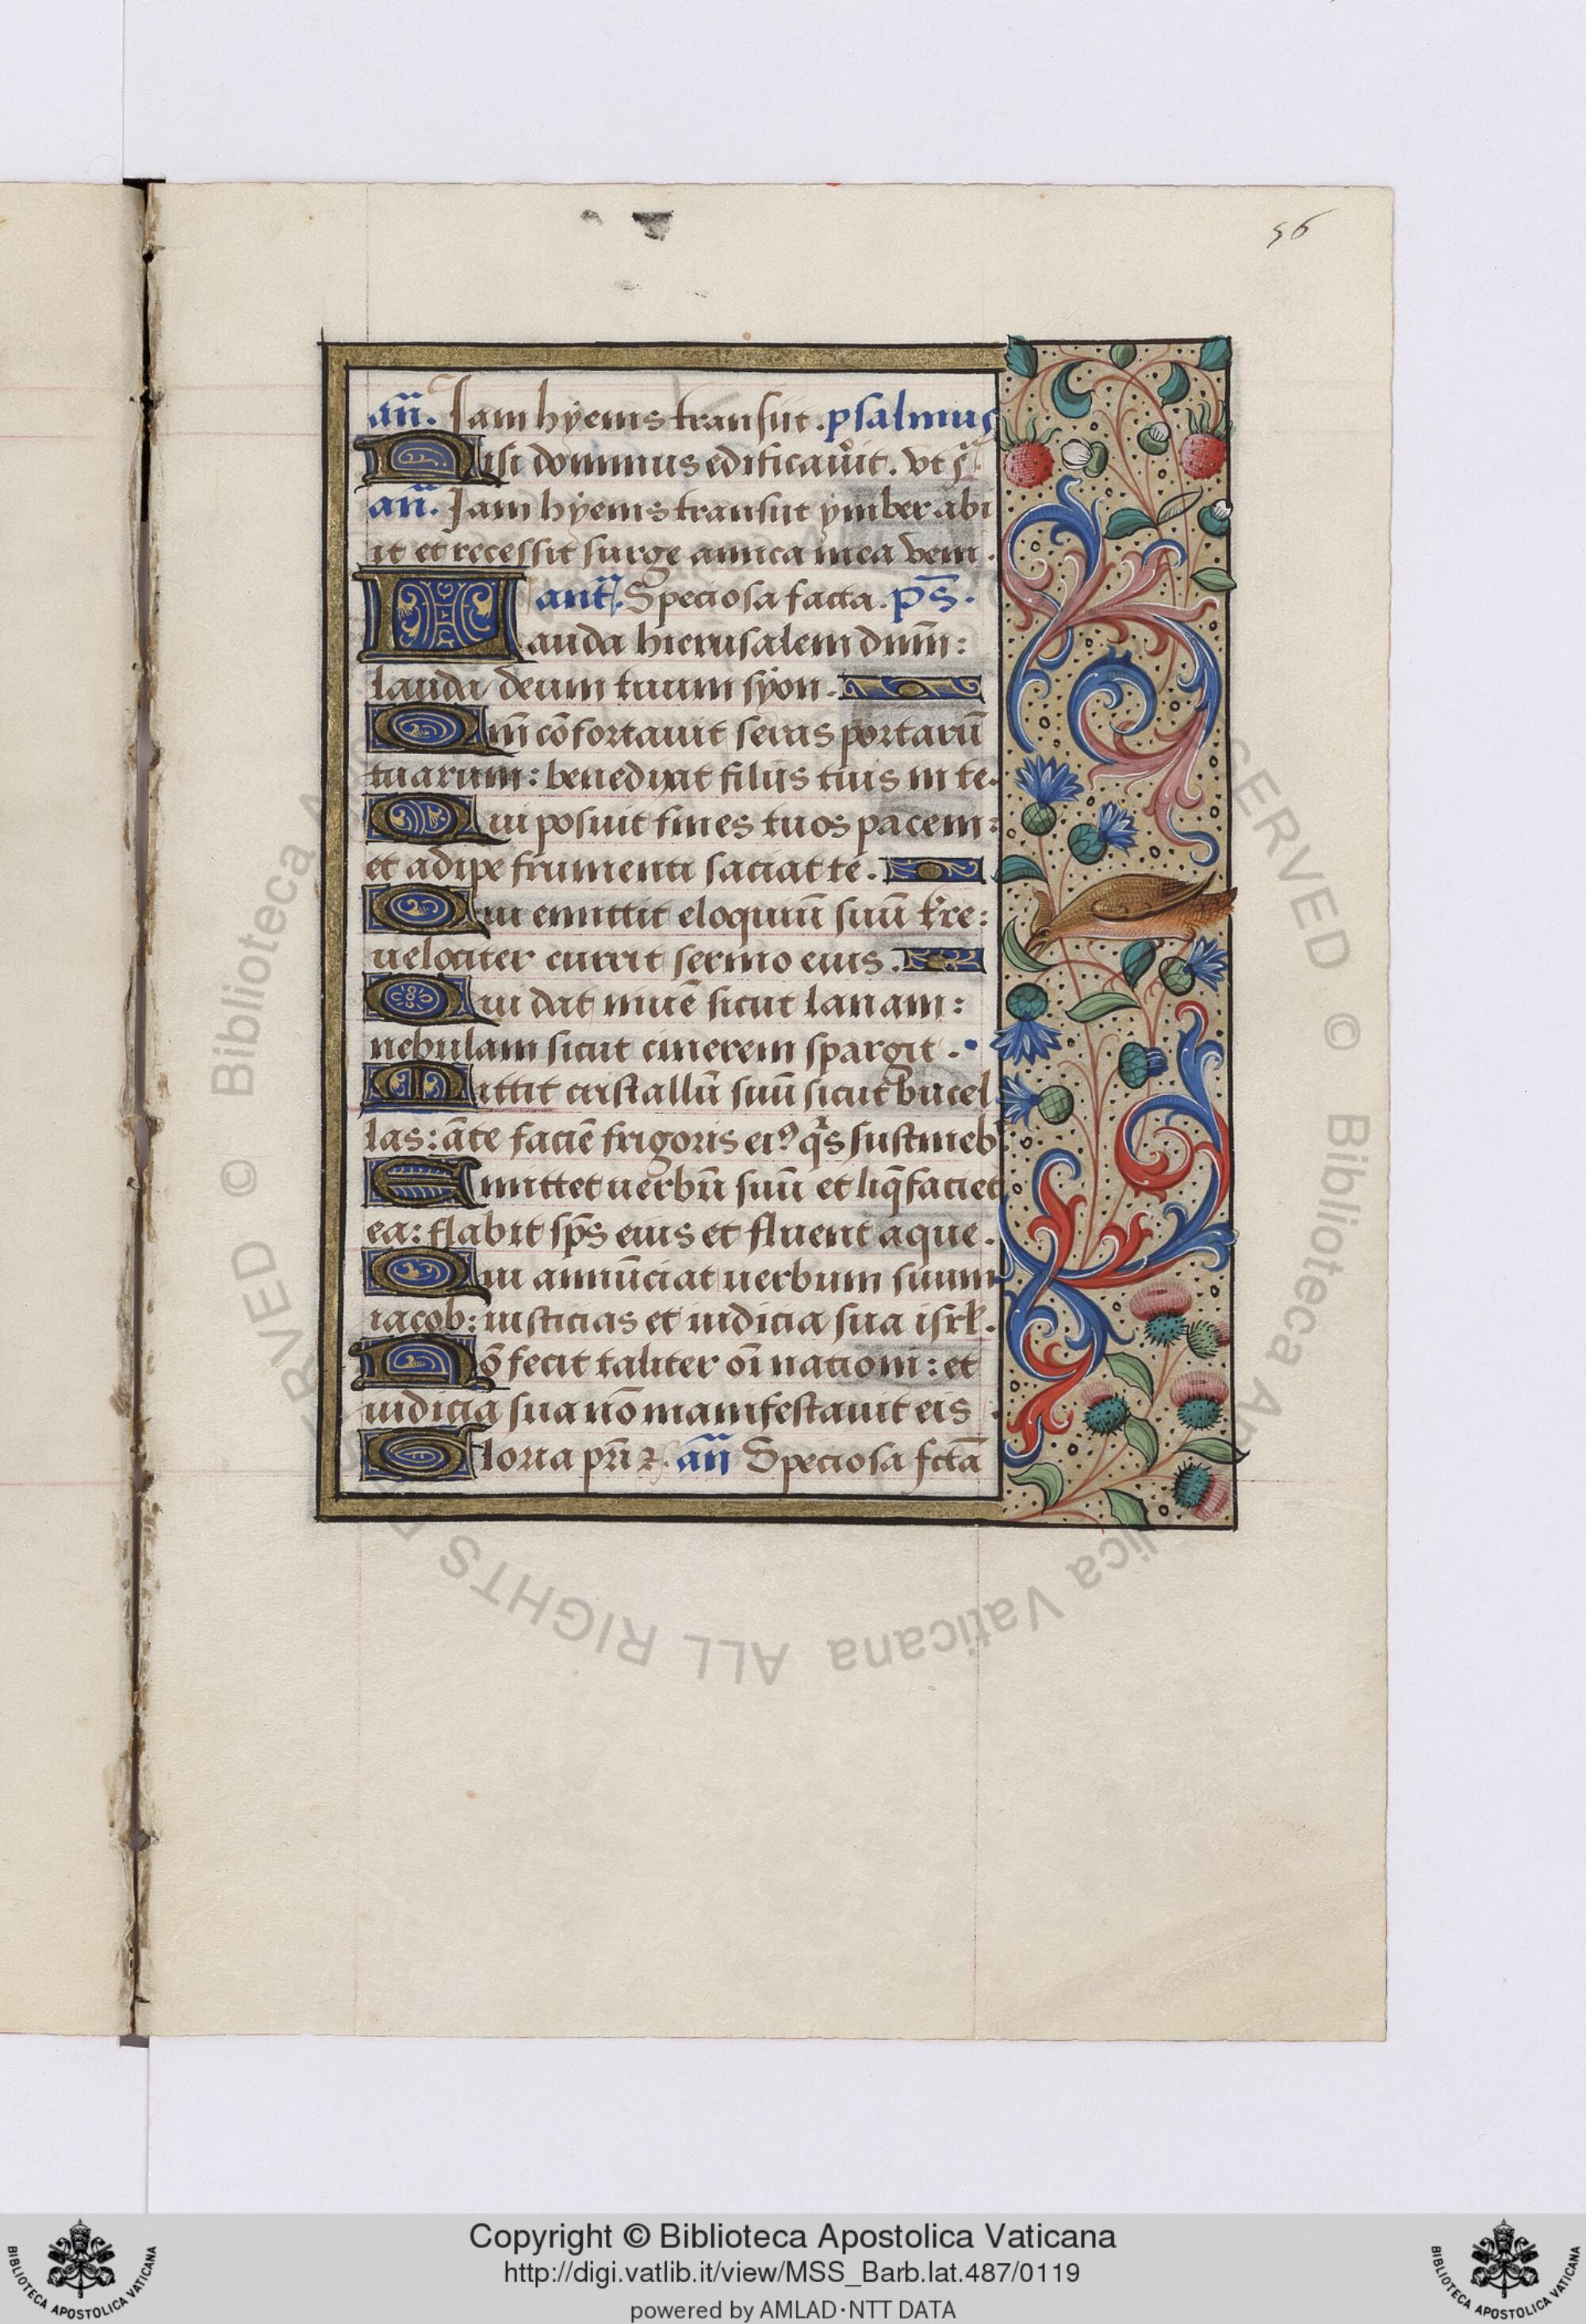 56
an̄. Jam hyems transiit. psalmus
Nisi dominus edificauit. vt sͣ.
an̄. Jam hyems transiit ymber abi
it et recessit surge amica mea veni.
ant̄. Speciosa facta. p̄s.
Lauda hierusalem dnm̄:
lauda deum tuum syon.
Qm̄ cōfortauit seras portarū
tuarum: benedixit filiis tuis in te.
Qui posuit fines tuos pacem:
et adipe frumenti saciat te.
Qui emittit eloquiū suū tr̄re:
uelociter currit sermo eius.
Qui dat niuē sicut lanam:
nebulam sicut cinerem spargit.
Mittit cristallū suū sicut bucel
las: āte faciē frigoris eiꝰ qͥs sustineb
Emittet uerbū suū et liq̄faciet
ea: flabit sp̄s eius et fluent aque.
Qui annūciat uerbum suum
iacob: iusticias et iudicia sua isrl̄.
Nō fecit taliter oī nationi: et
iudicia sua nō manifestauit eis
Gloria pr̄i ⁊. an̄ Speciosa fctā
© Biblioteca Apostolica Vaticana ALL RIGHTS RESERVED
Copyright © Biblioteca Apostolica Vaticana
http://digi.vatlib.it/view/MSS_Barb.lat.487/0119
powered by AMLAD·NTT DATA
BIBLIOTECA APOSTOLICA VATICANA
BIBLIOTECA APOSTOLICA VATICANA